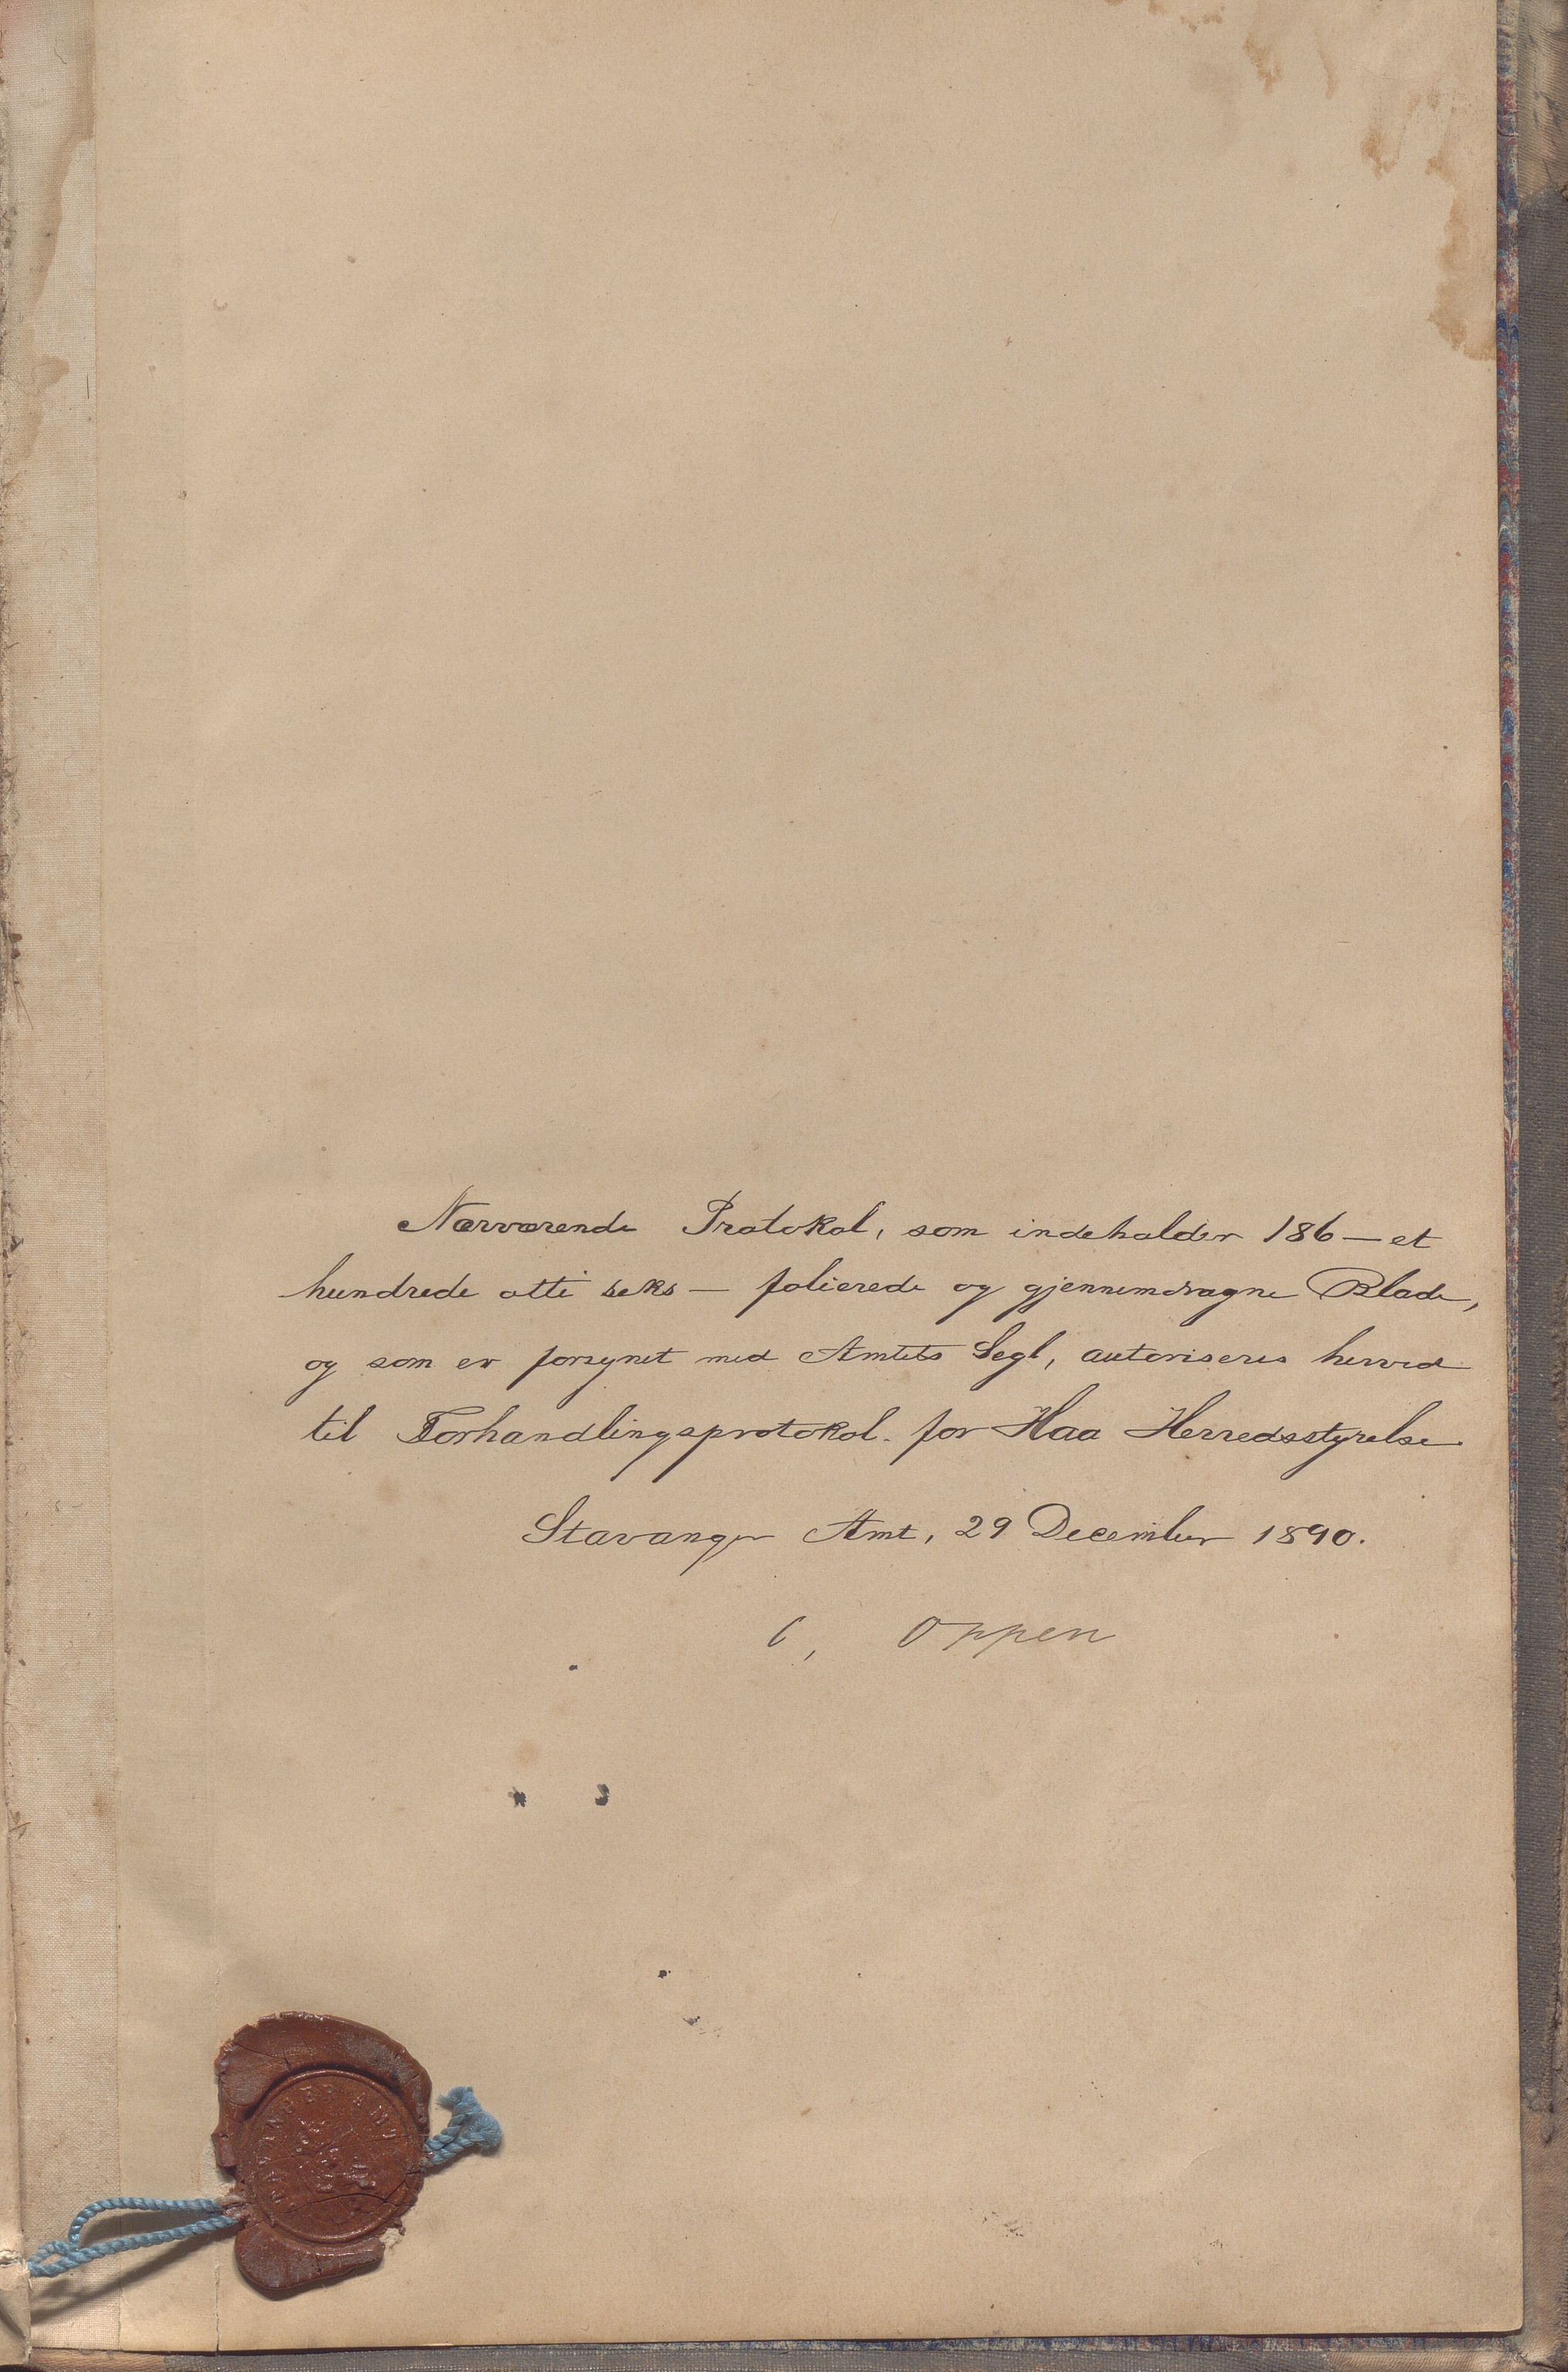 Nærværende Protokol, som indeholder 186 — et
hundrede otti seks — folierede og gjennemdragne Blade,
og som er forsynet med Amtets Segl, autoriseres herved
til Forhandlingsprotokol for Haa Herredsstyrelse
Stavanger Amt, 29 December 1890.
C, Oppen
STAVANGER AMT